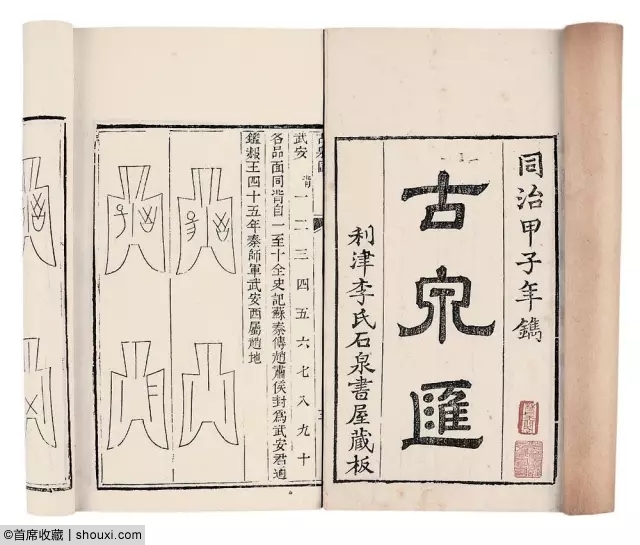 同治甲子年鐫
古泉匯
利津李氏石泉書屋藏板
武安 背 一 二 三 四 五 六 七 八 九 十
各品面同背自一至十全史記蘇秦傳趙肅侯封爲武安君通
鑑赧王四十五年秦師軍武安西屬趙地
©首席收藏 | shouxi.com